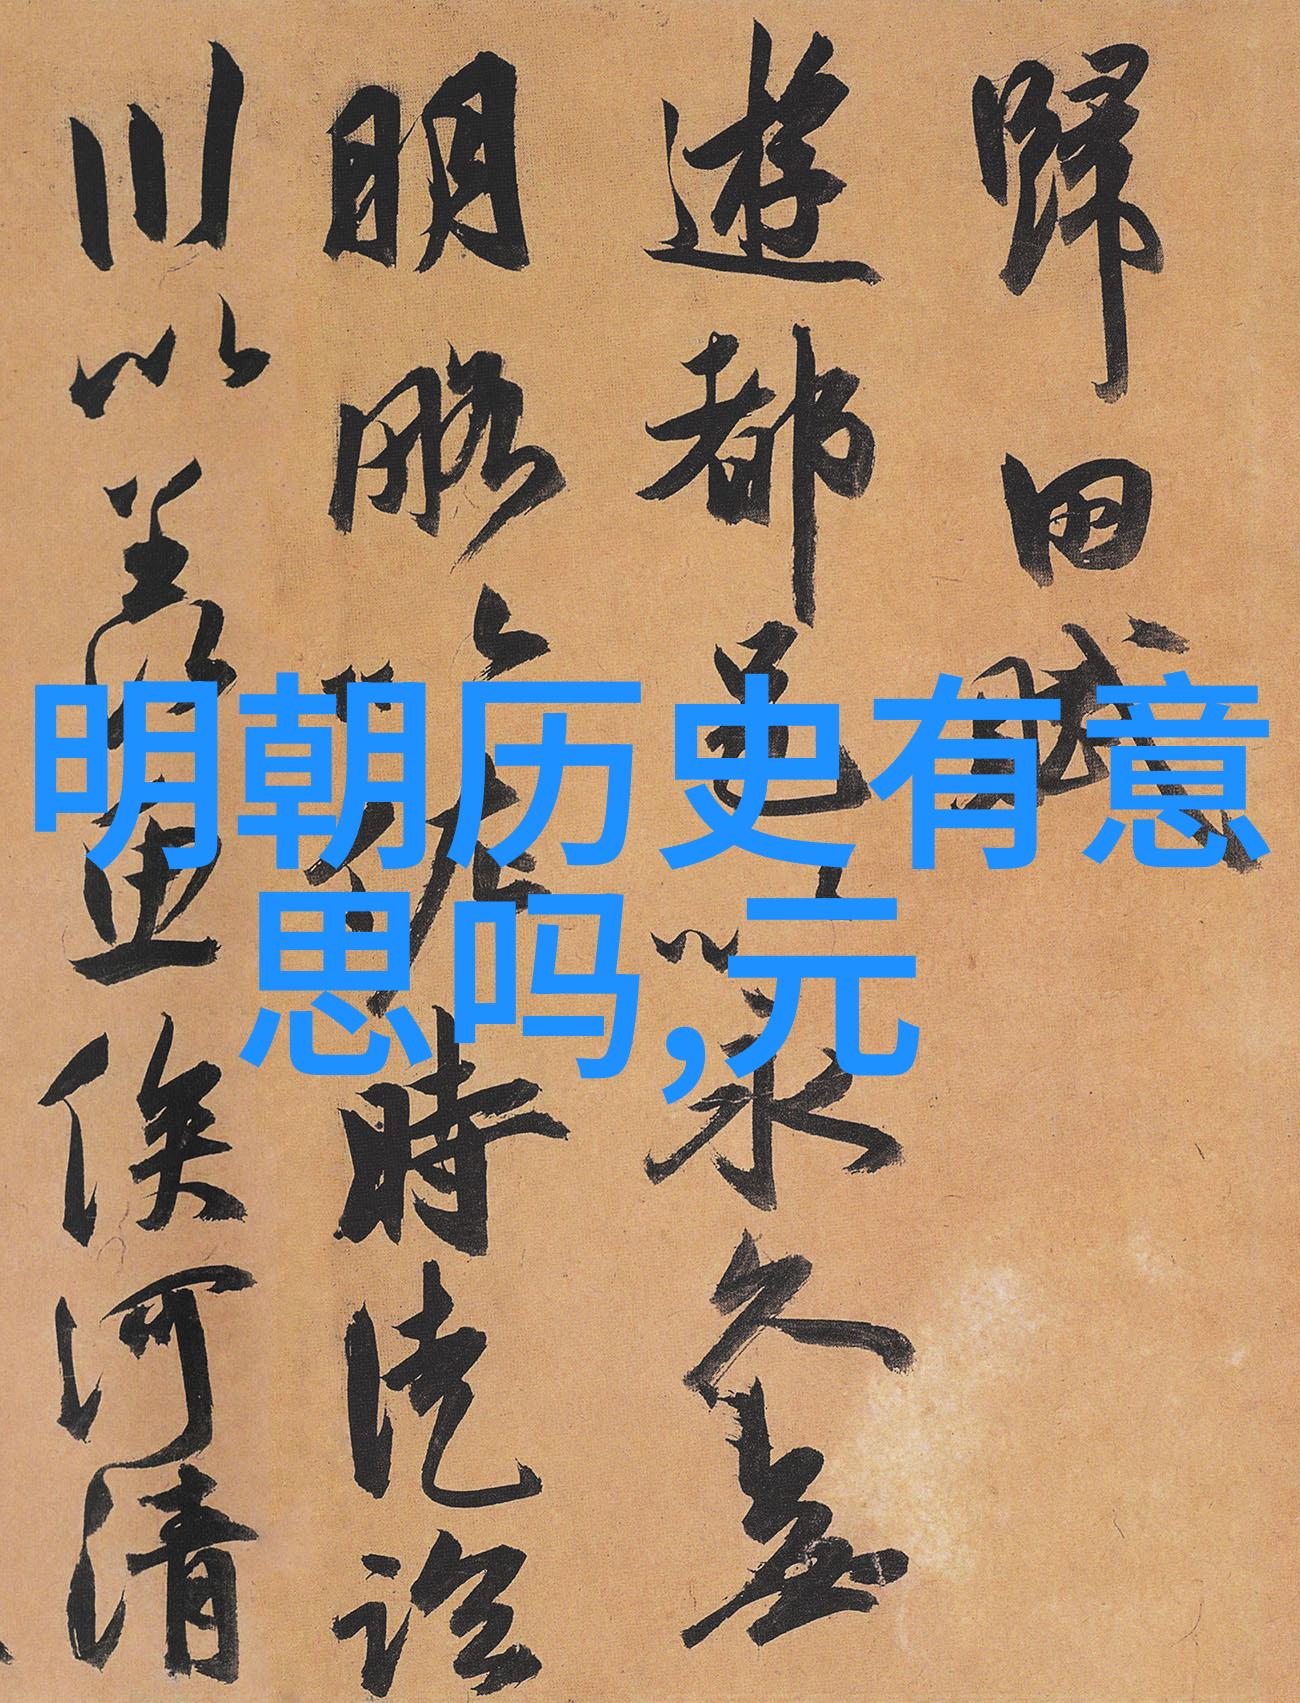 歸田賦
遊都邑以永久無
明略以佐時徒詒
川以羨魚俟河清
明朝历史有意
思吗,元